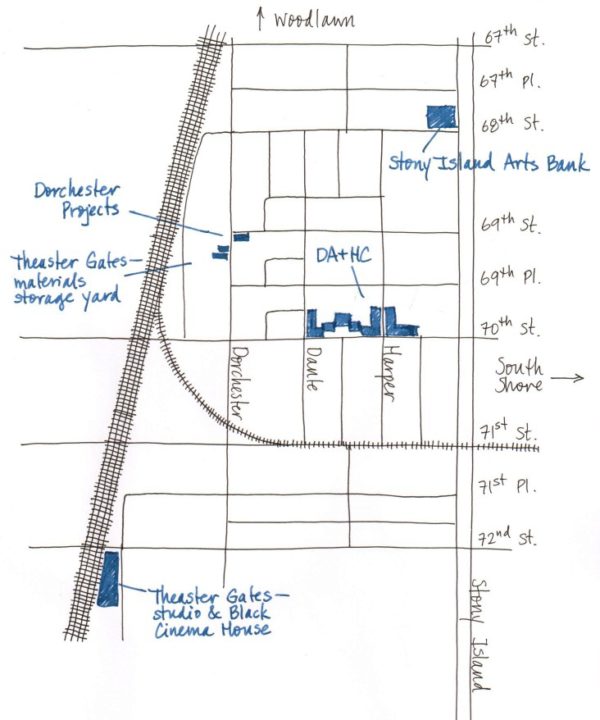 ↑ Woodlawn
67th St.
67th Pl.
68th St.
Stony Island Arts Bank
Dorchester
Projects
69th St.
Theaster Gates—
materials
storage yard
DA+HC
69th Pl.
70th St.
Dorchester
Dante
Harper
South
Shore →
71st St.
71st Pl.
72nd St.
Theaster Gates—
studio & Black
Cinema House
Stony Island